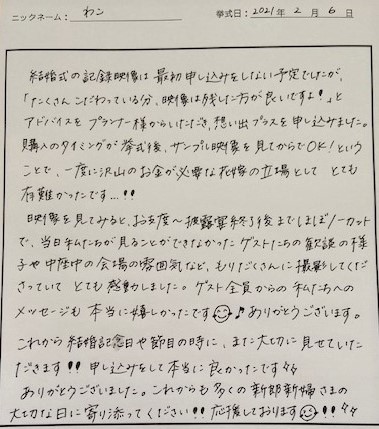 ニックネーム： わこ 挙式日：2021年 2 月 6 日
結婚式の記録映像は 最初申し込みをしない予定でしたが、
「たくさん こだわっている分、映像は残した方が良いですよ！」と
アドバイスを プランナー様からいただき、想い出プラスを申し込みました。
購入のタイミングが 挙式後、サンプル映像を見てからでOK！という
ことで、一度に沢山のお金が必要な花嫁の立場として とても
有難かったです…!!
映像を見てみると、お支度～披露宴終了後までほぼノーカット
で、当日私たちが見ることができなかったゲストたちの歓談の様
子や中座中の会場の雰囲気など、もりだくさんに撮影してくだ
さっていて とても感動しました。ゲスト全員からの私たちへの
メッセージも 本当に嬉しかったです♪ありがとうございます。
これから結婚記念日や節目の時に、また大切に見せていた
だきます!! 申し込みをして本当に良かったです
ありがとうございました。これからも多くの新郎新婦さまの
大切な日に寄り添ってください!! 応援しております!!